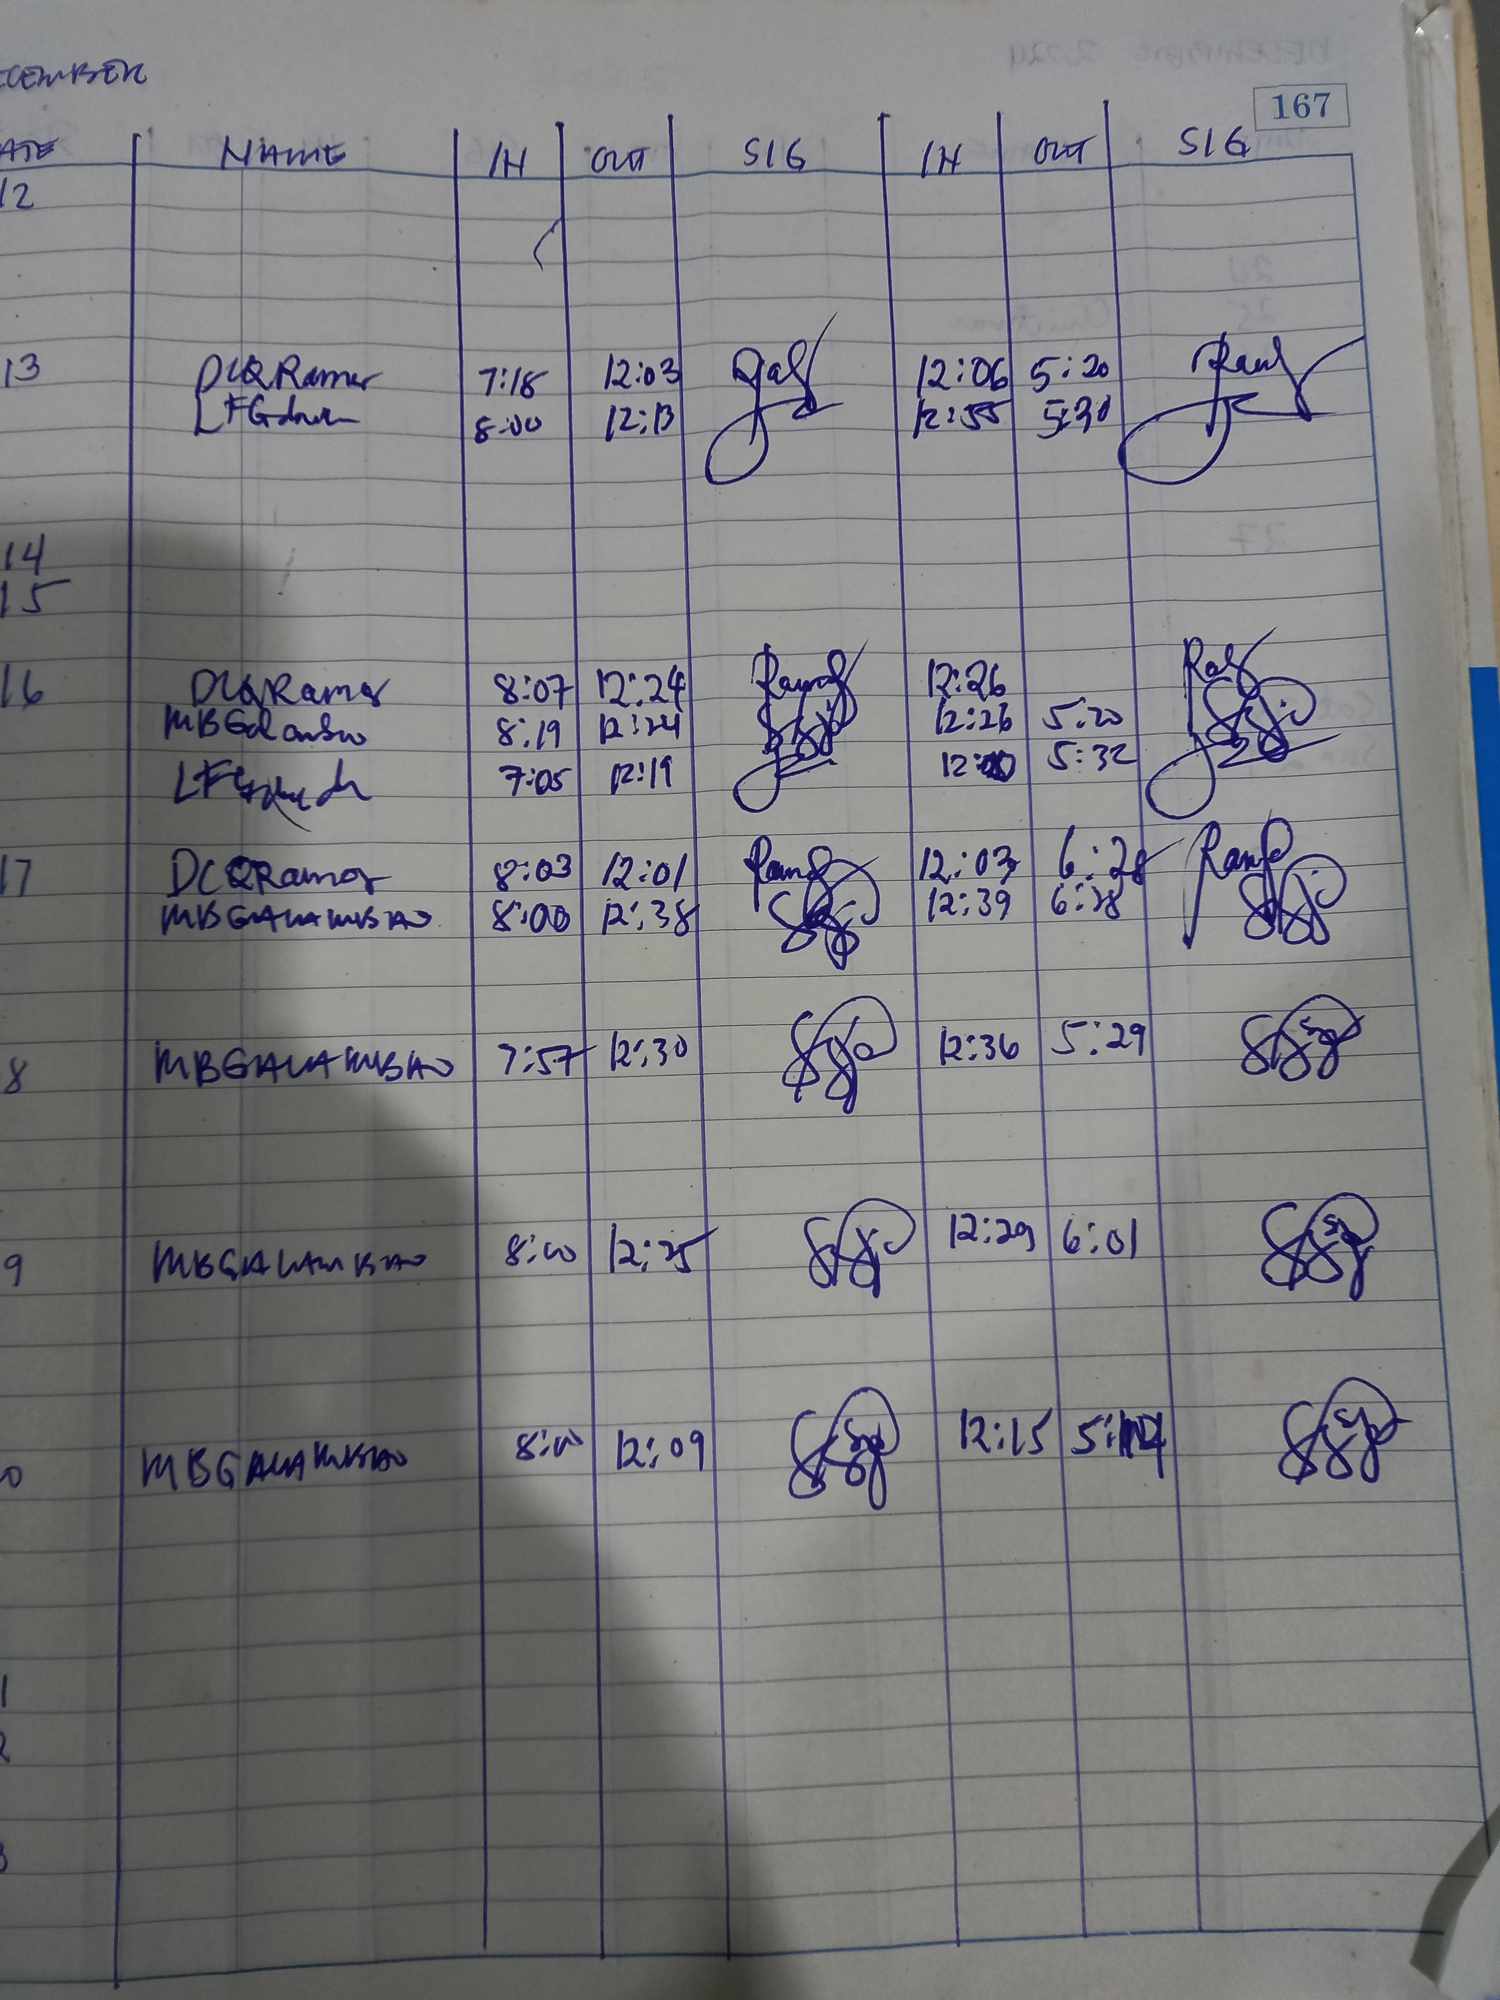 ECEMBER
167
ATE NAME IN OUT SIG IN OUT SIG
12
13 DCQRamos 7:18 12:03 12:06 5:20
8:00 12:13 12:55 5:30
14
15
16 DCQRamos 8:07 12:24 12:26
8:19 12:24 12:26 5:20
7:05 12:19 5:32
17 DCQRamos 8:03 12:01 12:03 6:28
MBGALAMBAO 8:00 12:38 12:39 6:28
8 MBGALAMBAO 7:57 12:30 12:36 5:29
9 MBGALAMBAO 8:00 12:25 12:29 6:01
0 MBGALAMBAO 8:00 12:09 12:15
1
2
3